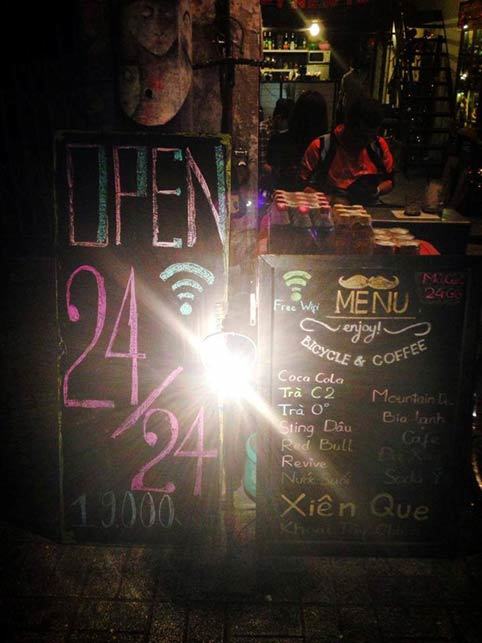 OPEN
24/24
19.000
Free Wifi
MENU
enjoy!
BICYCLE & COFFEE
Mở Cửa
24 Giờ
Coca Cola
Trà C2
Trà 0°
Sting Dâu
Red Bull
Revive
Nước Suối
Mountain
Bia lạnh
Cafe
Soda Ý
Xiên Que
Khoai